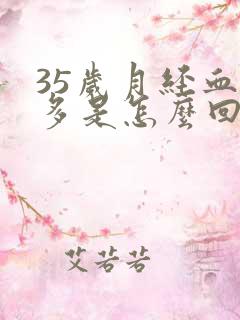 35歲月経血
多是怎麼回
艾若若